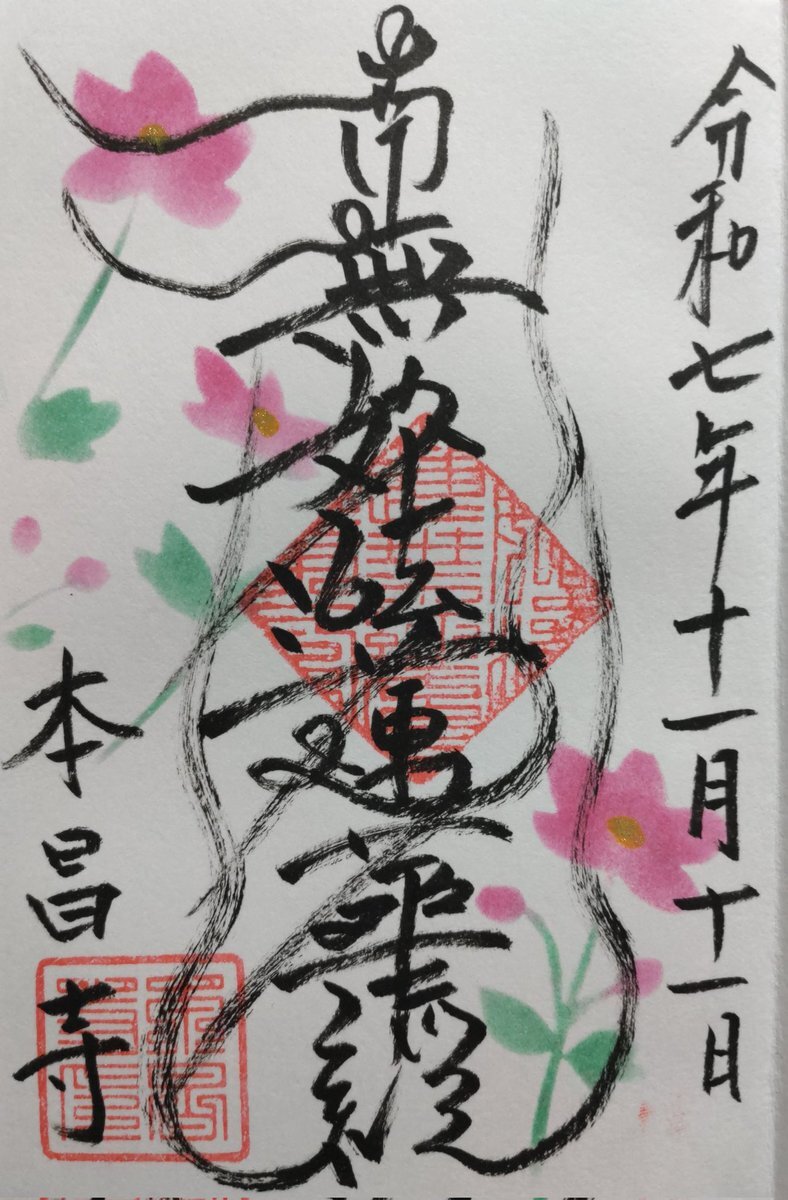 令和七年十一月十一日
南無妙法蓮華経
本昌寺